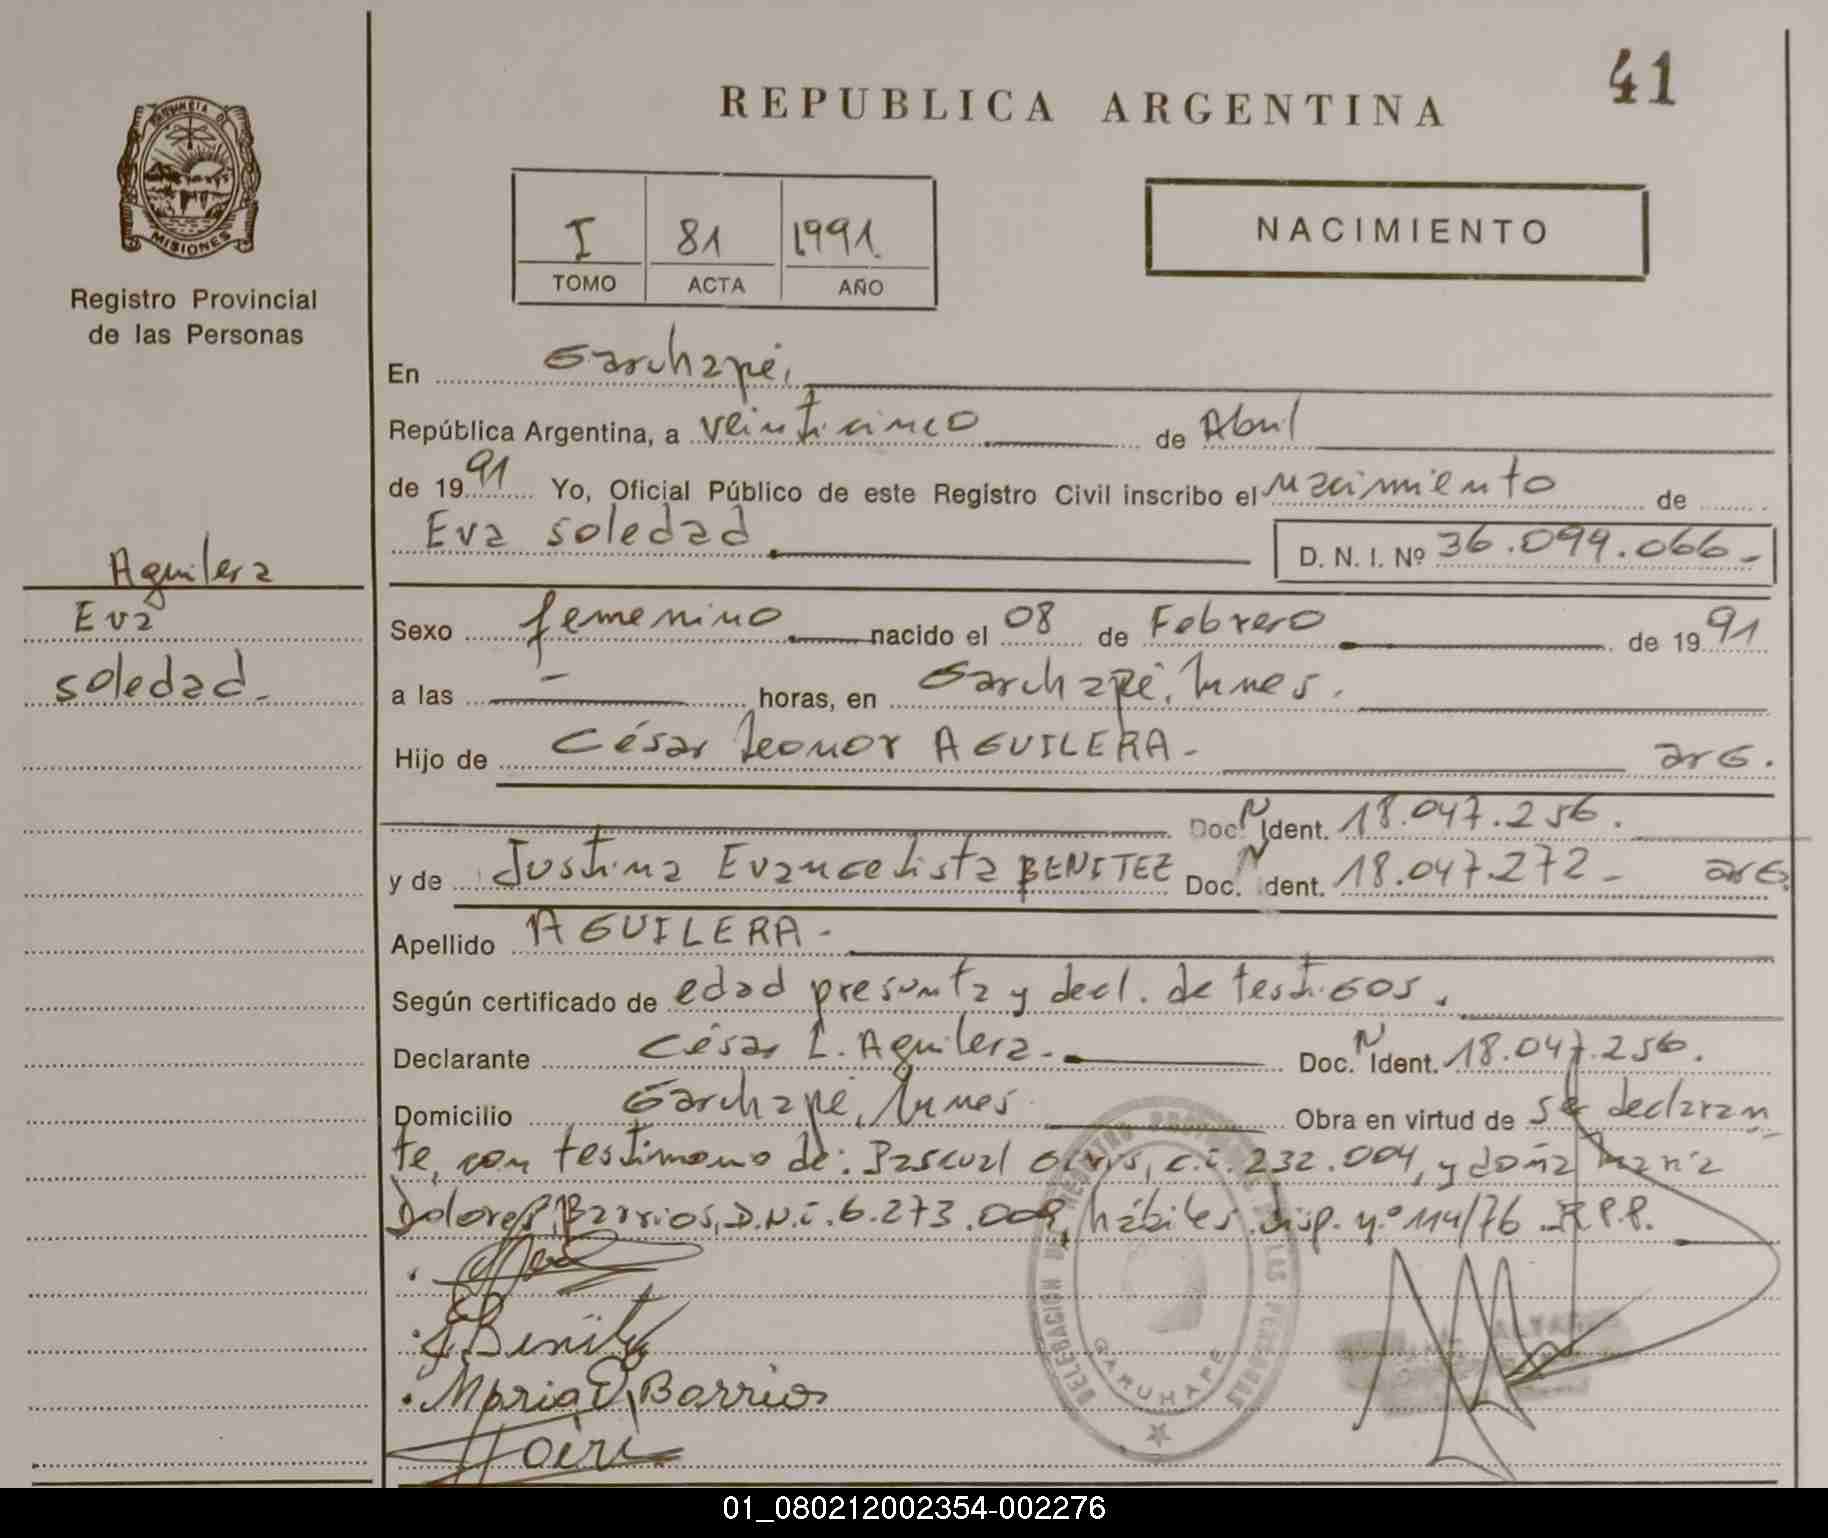 41
REPUBLICA ARGENTINA
PROVINCIA DE
MISIONES
Registro Provincial
de las Personas
I 81 1991.
TOMO ACTA AÑO
NACIMIENTO
En Garuhapé,
República Argentina, a veinticinco de Abril
de 1991 Yo, Oficial Público de este Registro Civil inscribo el nacimiento de
Eva soledad D. N. I. Nº 36.099.066-
Aguilera
Eva
soledad-
Sexo femenino nacido el 08 de Febrero de 1991
a las - horas, en Garuhapé, Mnes.
Hijo de César Leonor AGUILERA- arg.
Doc. N Ident. 18.047.256.
y de Justina Evangelista BENITEZ Doc. N Ident. 18.047.272- arg.
Apellido AGUILERA-
Según certificado de edad presunta y decl. de testigos.
Declarante César L. Aguilera- Doc. N Ident. 18.047.256.
Domicilio Garuhapé, Mnes Obra en virtud de ser declaran
te, con testimonio de: Pascual C.I. 232.004, y doña María
Dolores Barrios, D.N.I. 6.273.009, hábiles disp. nº 114/76 R.P.P.
J. Benitez
Maria D. Barrios
DELEGACION DEL REGISTRO PROVINCIAL DE LAS PERSONAS
GARUHAPE
01_080212002354-002276